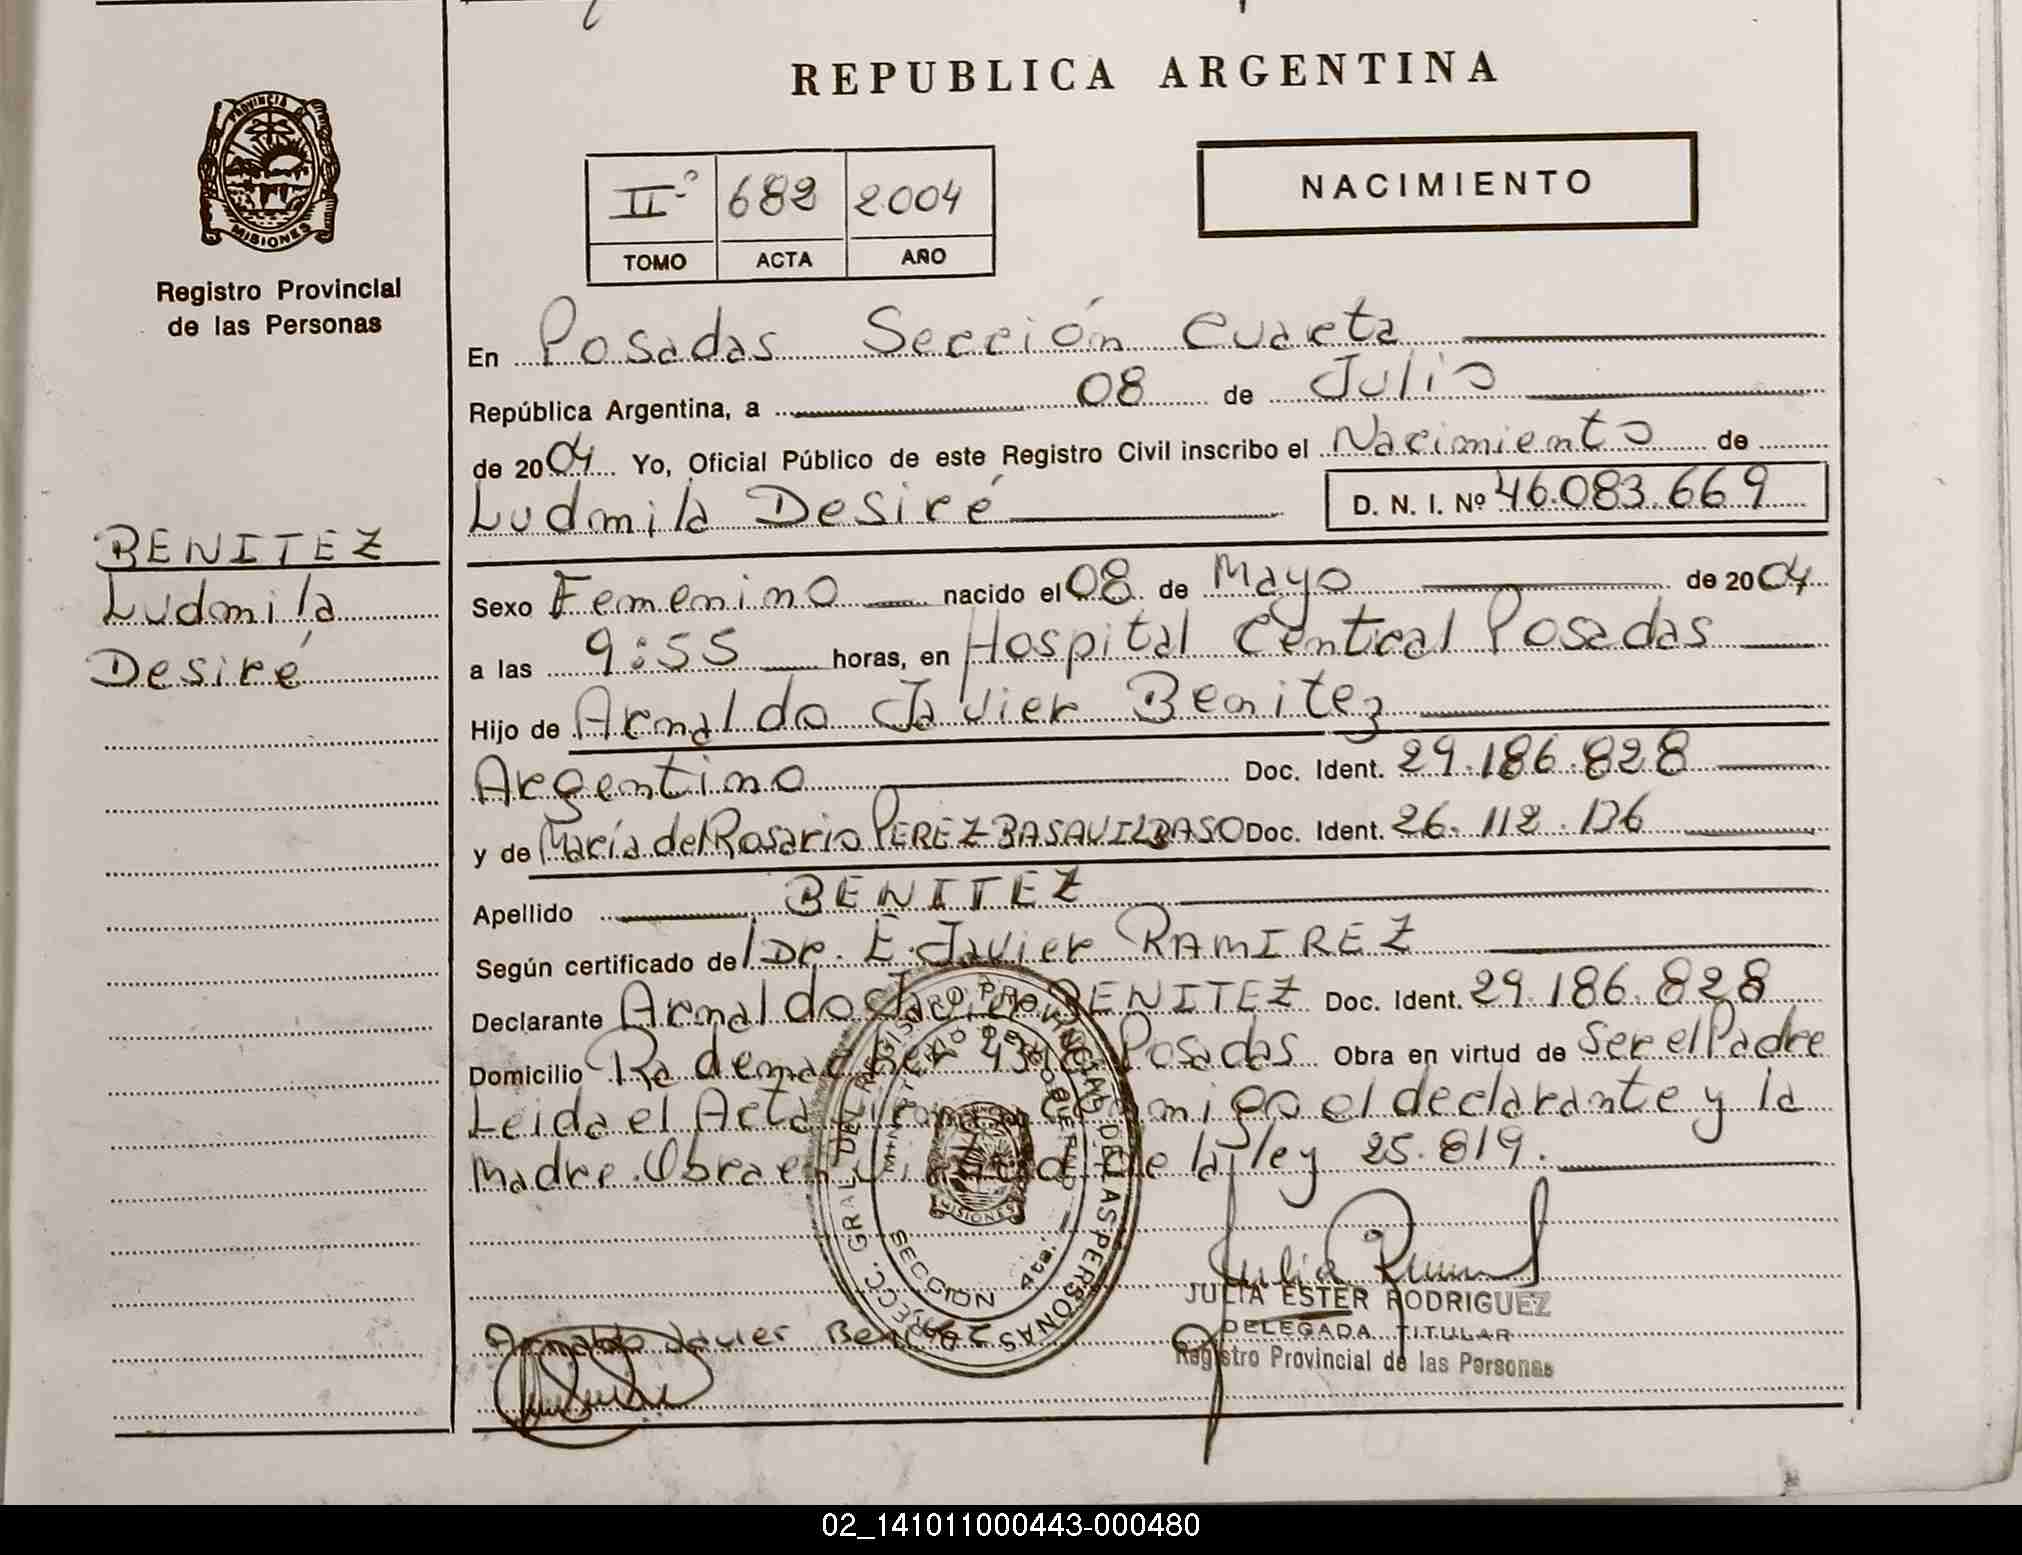 REPUBLICA ARGENTINA
PROVINCIA D MISIONES
IIº 682 2004
TOMO ACTA AÑO
NACIMIENTO
Registro Provincial
de las Personas
En Posadas Sección Cuarta
República Argentina, a 08 de Julio
de 2004 Yo, Oficial Público de este Registro Civil inscribo el Nacimiento de
Ludmila Desiré D. N. I. Nº 46.083.669
BENITEZ
Ludmila
Desiré
Sexo Femenino nacido el 08 de Mayo de 2004
a las 9:55 horas, en Hospital Central Posadas
Hijo de Arnaldo Javier Benitez
Argentino Doc. Ident. 29.186.828
y de María del Rosario PEREZ BASAVILBASO Doc. Ident. 26.112.136
Apellido BENITEZ
Según certificado del Dr. E. Javier RAMIREZ
Declarante Arnaldo Javier BENITEZ Doc. Ident. 29.186.828
Domicilio Posadas Obra en virtud de Ser el Padre
Leida el Acta firman conmigo el declarante y la
Madre. Obra en virtud de la ley 25.819.
DIRECC. GRAL. DEL REGISTRO PROVINCIAL DE LAS PERSONAS
MISIONES
SECCION 4ta.
JULIA ESTER RODRIGUEZ
DELEGADA TITULAR
Registro Provincial de las Personas
Arnaldo Javier
02_141011000443-000480